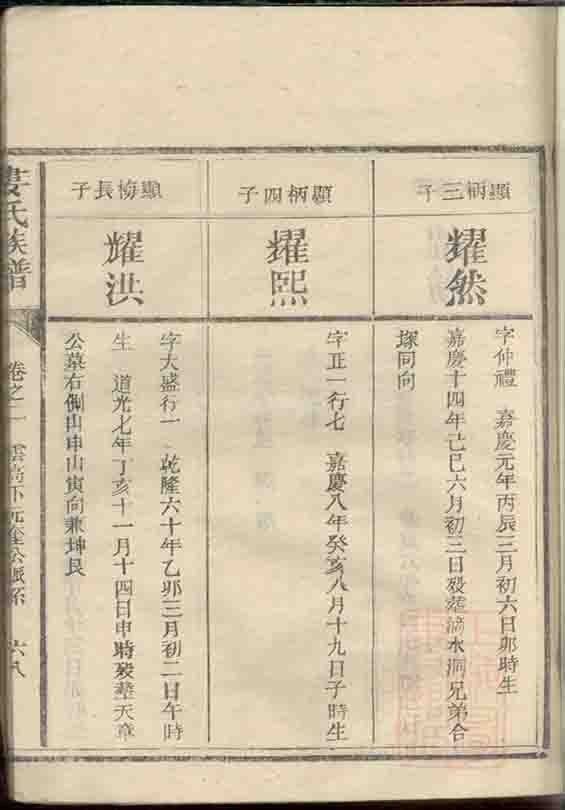 顯柄三子
耀然
字仲禮　嘉慶元年丙辰三月初六日卯時生
嘉慶十四年己巳六月初三日歿葬滴水洞兄弟合
塚同向
顯柄四子
耀熙
字正一行七　嘉慶八年癸亥八月十九日子時生
顯梅長子
耀洪
字大盛行一　乾隆六十年乙卯三月初二日午時
生　道光七年丁亥十一月十四日申時歿塟天章
公墓右側山申山寅向兼坤艮
氏族譜
卷之二　雲高下元奎公派系　六八